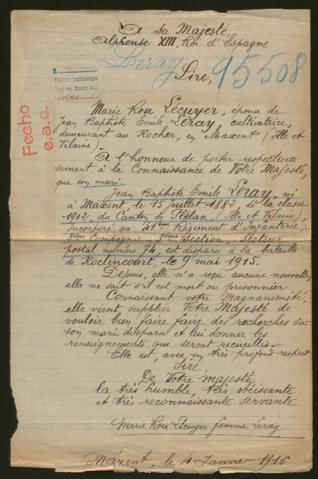 A sa Majesté,
Alphonse XIII, Roi d'Espagne
Leray
Sire,
95508
Fecho
e.a.e.
Marie Rose Lécuyer, épouse de
Jean Baptiste Emile Leray, cultivatrice,
demeurant au Rocher, en Maxent (Ille et
Vilaine)
A l'honneur de porter respectueu-
sement à la Connaissance de Votre Majesté,
que son mari
Jean Baptiste Emile Leray, né
à Maxent le 15 juillet 1882 de la classe
1902, du Canton de Plélan (Ille et Vilaine),
Incorporé au 41ème Régiment d'Infanterie,
Compagnie Section Secteur
postal numéro 74, est disparu à la bataille
de Roclincourt le 9 mai 1915.
Depuis, elle n'a reçu aucune nouvelle,
elle ne sait s'il est mort ou prisonnier
Connaissant votre Magnanimité,
elle vient supplier Votre Majesté de
vouloir bien faire faire des recherches sur
son mari disparu et lui donner les
renseignements qui seront recueillis
Elle est, avec un très profond respect
Sire
De Votre Majesté,
la très humble, très obéissante
et très reconnaissante servante
Marie Rose Lécuyer femme Leray
Maxent, le 4 Janvier 1916